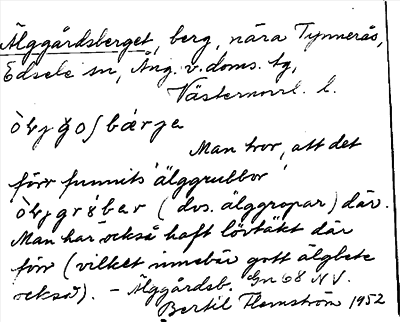 Älggårdsberget, berg, nära Tynnerås,
Edsele sn, Ång. v. doms. tg,
Västernorrl. l.
Man tror, att det
förr funnits 'älggrubbor'
(dvs. älggropar) där.
Man har också haft lövtäkt där
förr (vilket innebär gott älgbete
också). – Älggårdsb. Gn 68 NV.
Bertil Flemström 1952